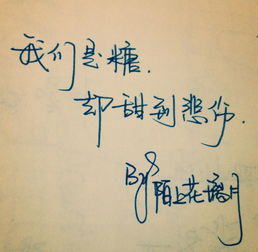 我们是糖.
却甜到悲伤.
By 陌上花醉月